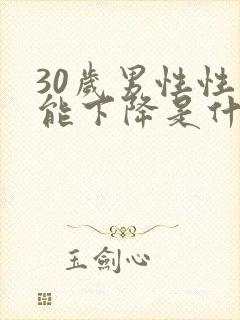 30歲男性性
能下降是什
玉劍心